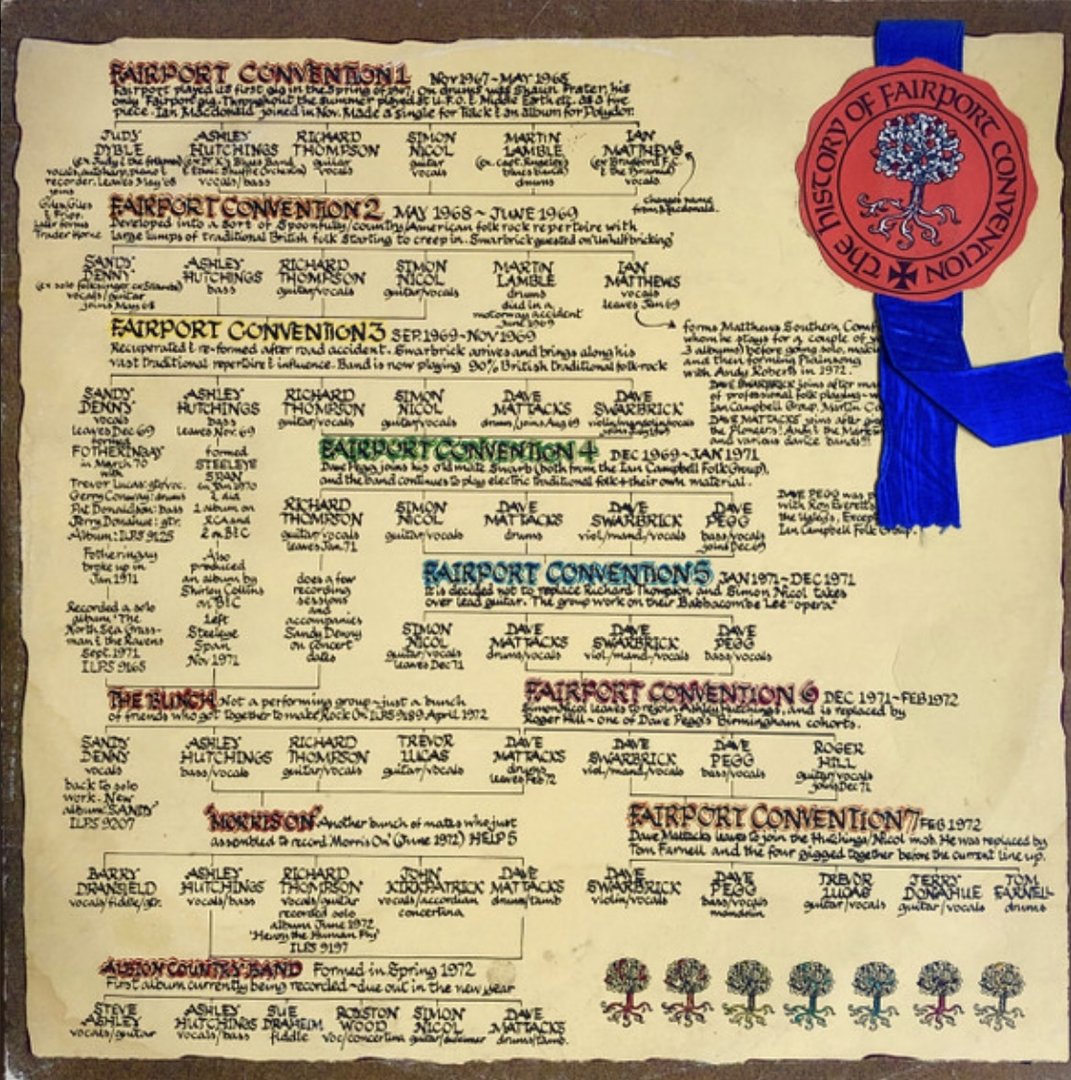 FAIRPORT CONVENTION 1 NOV 1967~MAY 1968
Fairport played its first gig in the Spring of 1967. On drums was Shaun Frater, his
only Fairport gig. Throughout the summer played at U.F.O. & Middle Earth etc. as a five
piece. Ian Macdonald joined in Nov. Made a single for Track & an album for Polydor.
JUDY ASHLEY RICHARD SIMON MARTIN IAN
DYBLE HUTCHINGS THOMPSON NICOL LAMBLE MATTHEWS
(ex Judy & the folkmen) (ex Dr. K's Blues Band guitar guitar (ex. capt. blues band) (ex Bradford F.C.
vocals, autoharp, piano & & Ethnic Shuffle Orchestra) vocals vocals drums & the Pyramid)
recorder. leaves May '68 vocals/bass vocals
joins changes name
Giles, Giles from Macdonald.
& Fripp.
Later forms
Trader Horne
FAIRPORT CONVENTION 2 MAY 1968~JUNE 1969
Developed into a sort of Spoonfully/country/American folk rock repertoire with
large lumps of traditional British folk starting to creep in. Swarbrick guested on 'Unhalfbricking'
SANDY ASHLEY RICHARD SIMON MARTIN IAN
DENNY HUTCHINGS THOMPSON NICOL LAMBLE MATTHEWS
(ex solo folksinger, ex Strawbs) bass guitar/vocals guitar/vocals drums vocals
vocals/guitar died in a leaves Jan 69
joins May 68 motorway accident
June 1969
FAIRPORT CONVENTION 3 SEP. 1969~NOV 1969
Recuperated & re-formed after road accident. Swarbrick arrives and brings along his
vast traditional repertoire & influence. Band is now playing 90% British traditional folk-rock
forms Matthews Southern Comf
whom he stays for a couple of y
3 albums) before going solo, maki
and then forming Plainsong
with Andy Roberts in 1972.
DAVE SWARBRICK joins after ma
of professional folk playing~w
Ian Campbell Group, Martin C
DAVE MATTACKS joins after
the Pioneers! And & the
and various dance bands!!!
SANDY ASHLEY RICHARD SIMON DAVE DAVE
DENNY HUTCHINGS THOMPSON NICOL MATTACKS SWARBRICK
vocals bass guitar/vocals guitar/vocals drums/joins Aug 69 violin/mandolin/vocals
leaves Dec 69 leaves Nov. 69 joins
formed
FOTHERINGAY
in March 70
with
Trevor Lucas: gtr/voc.
Gerry Conway: drums
Pat Donaldson: bass
Jerry Donahue: gtr.
Album: ILPS 9125
Fotheringay
broke up in
Jan 1971
Recorded a solo
album 'The
North Sea Grass-
man & the Ravens
Sept. 1971
ILPS 9165
formed
STEELEYE
SPAN
in Jan 1970
& did
1 album on
RCA and
2 on B&C
Also
produced
an album by
Shirley Collins
on B&C
Left
Steeleye
Span
Nov 1971
FAIRPORT CONVENTION 4 DEC 1969~JAN 1971
Dave Pegg joins his old mate Swarb (both from the Ian Campbell Folk Group),
and the band continues to play electric traditional folk + their own material.
RICHARD SIMON DAVE DAVE DAVE
THOMPSON NICOL MATTACKS SWARBRICK PEGG
guitar/vocals guitar/vocals drums viol/mand/vocals bass/vocals
leaves Jan. 71 joins Dec 69
DAVE PEGG was p
with Roy Everett's
the Ugly's, Excep
Ian Campbell Folk Group.
does a few
recording
sessions
and
accompanies
Sandy Denny
on concert
dates
FAIRPORT CONVENTION 5 JAN 1971~DEC 1971
It is decided not to replace Richard Thompson and Simon Nicol takes
over lead guitar. The group work on their Babbacombe Lee "opera"
SIMON DAVE DAVE DAVE
NICOL MATTACKS SWARBRICK PEGG
guitar/vocals drums/vocals viol/mand/vocals bass/vocals
leaves Dec 71
THE BUNCH Not a performing group~just a bunch
of friends who got together to make 'Rock On' ILPS 9189 April 1972
FAIRPORT CONVENTION 6 DEC 1971~FEB 1972
Simon Nicol leaves to rejoin Ashley Hutchings, and is replaced by
Roger Hill~one of Dave Pegg's Birmingham cohorts.
SANDY ASHLEY RICHARD TREVOR DAVE DAVE DAVE ROGER
DENNY HUTCHINGS THOMPSON LUCAS MATTACKS SWARBRICK PEGG HILL
vocals bass/vocals guitar/vocals guitar/vocals drums viol/mand/vocals bass/vocals guitar/vocals
leaves Feb 72 joins Dec 71
back to solo
work. New
album "SANDY"
ILPS 9207
"MORRIS ON" Another bunch of mates who just
assembled to record 'Morris On' (June 1972) HELP 5
FAIRPORT CONVENTION 7 FEB 1972
Dave Mattacks leaves to join the Hutchings/Nicol mob. He was replaced by
Tom Farnell and the four gigged together before the current line up.
BARRY ASHLEY RICHARD JOHN DAVE
DRANSFIELD HUTCHINGS THOMPSON KIRKPATRICK MATTACKS
vocals/fiddle/gtr. vocals/bass vocals/guitar vocals/accordian drums/tamb
recorded solo concertina
album June 1972
'Henry the Human Fly'
ILPS 9197
DAVE DAVE TREVOR JERRY TOM
SWARBRICK PEGG LUCAS DONAHUE FARNELL
violin/vocals bass/vocals guitar/vocals guitar/vocals drums
mandolin
ALBION COUNTRY BAND Formed in Spring 1972
First album currently being recorded~due out in the new year
STEVE ASHLEY SUE ROYSTON SIMON DAVE
ASHLEY HUTCHINGS DRAHEIM WOOD NICOL MATTACKS
vocals/guitar vocals/bass fiddle voc/concertina guitar/dulcimer drums/tamb.
The HISTORY OF FAIRPORT CONVENTION